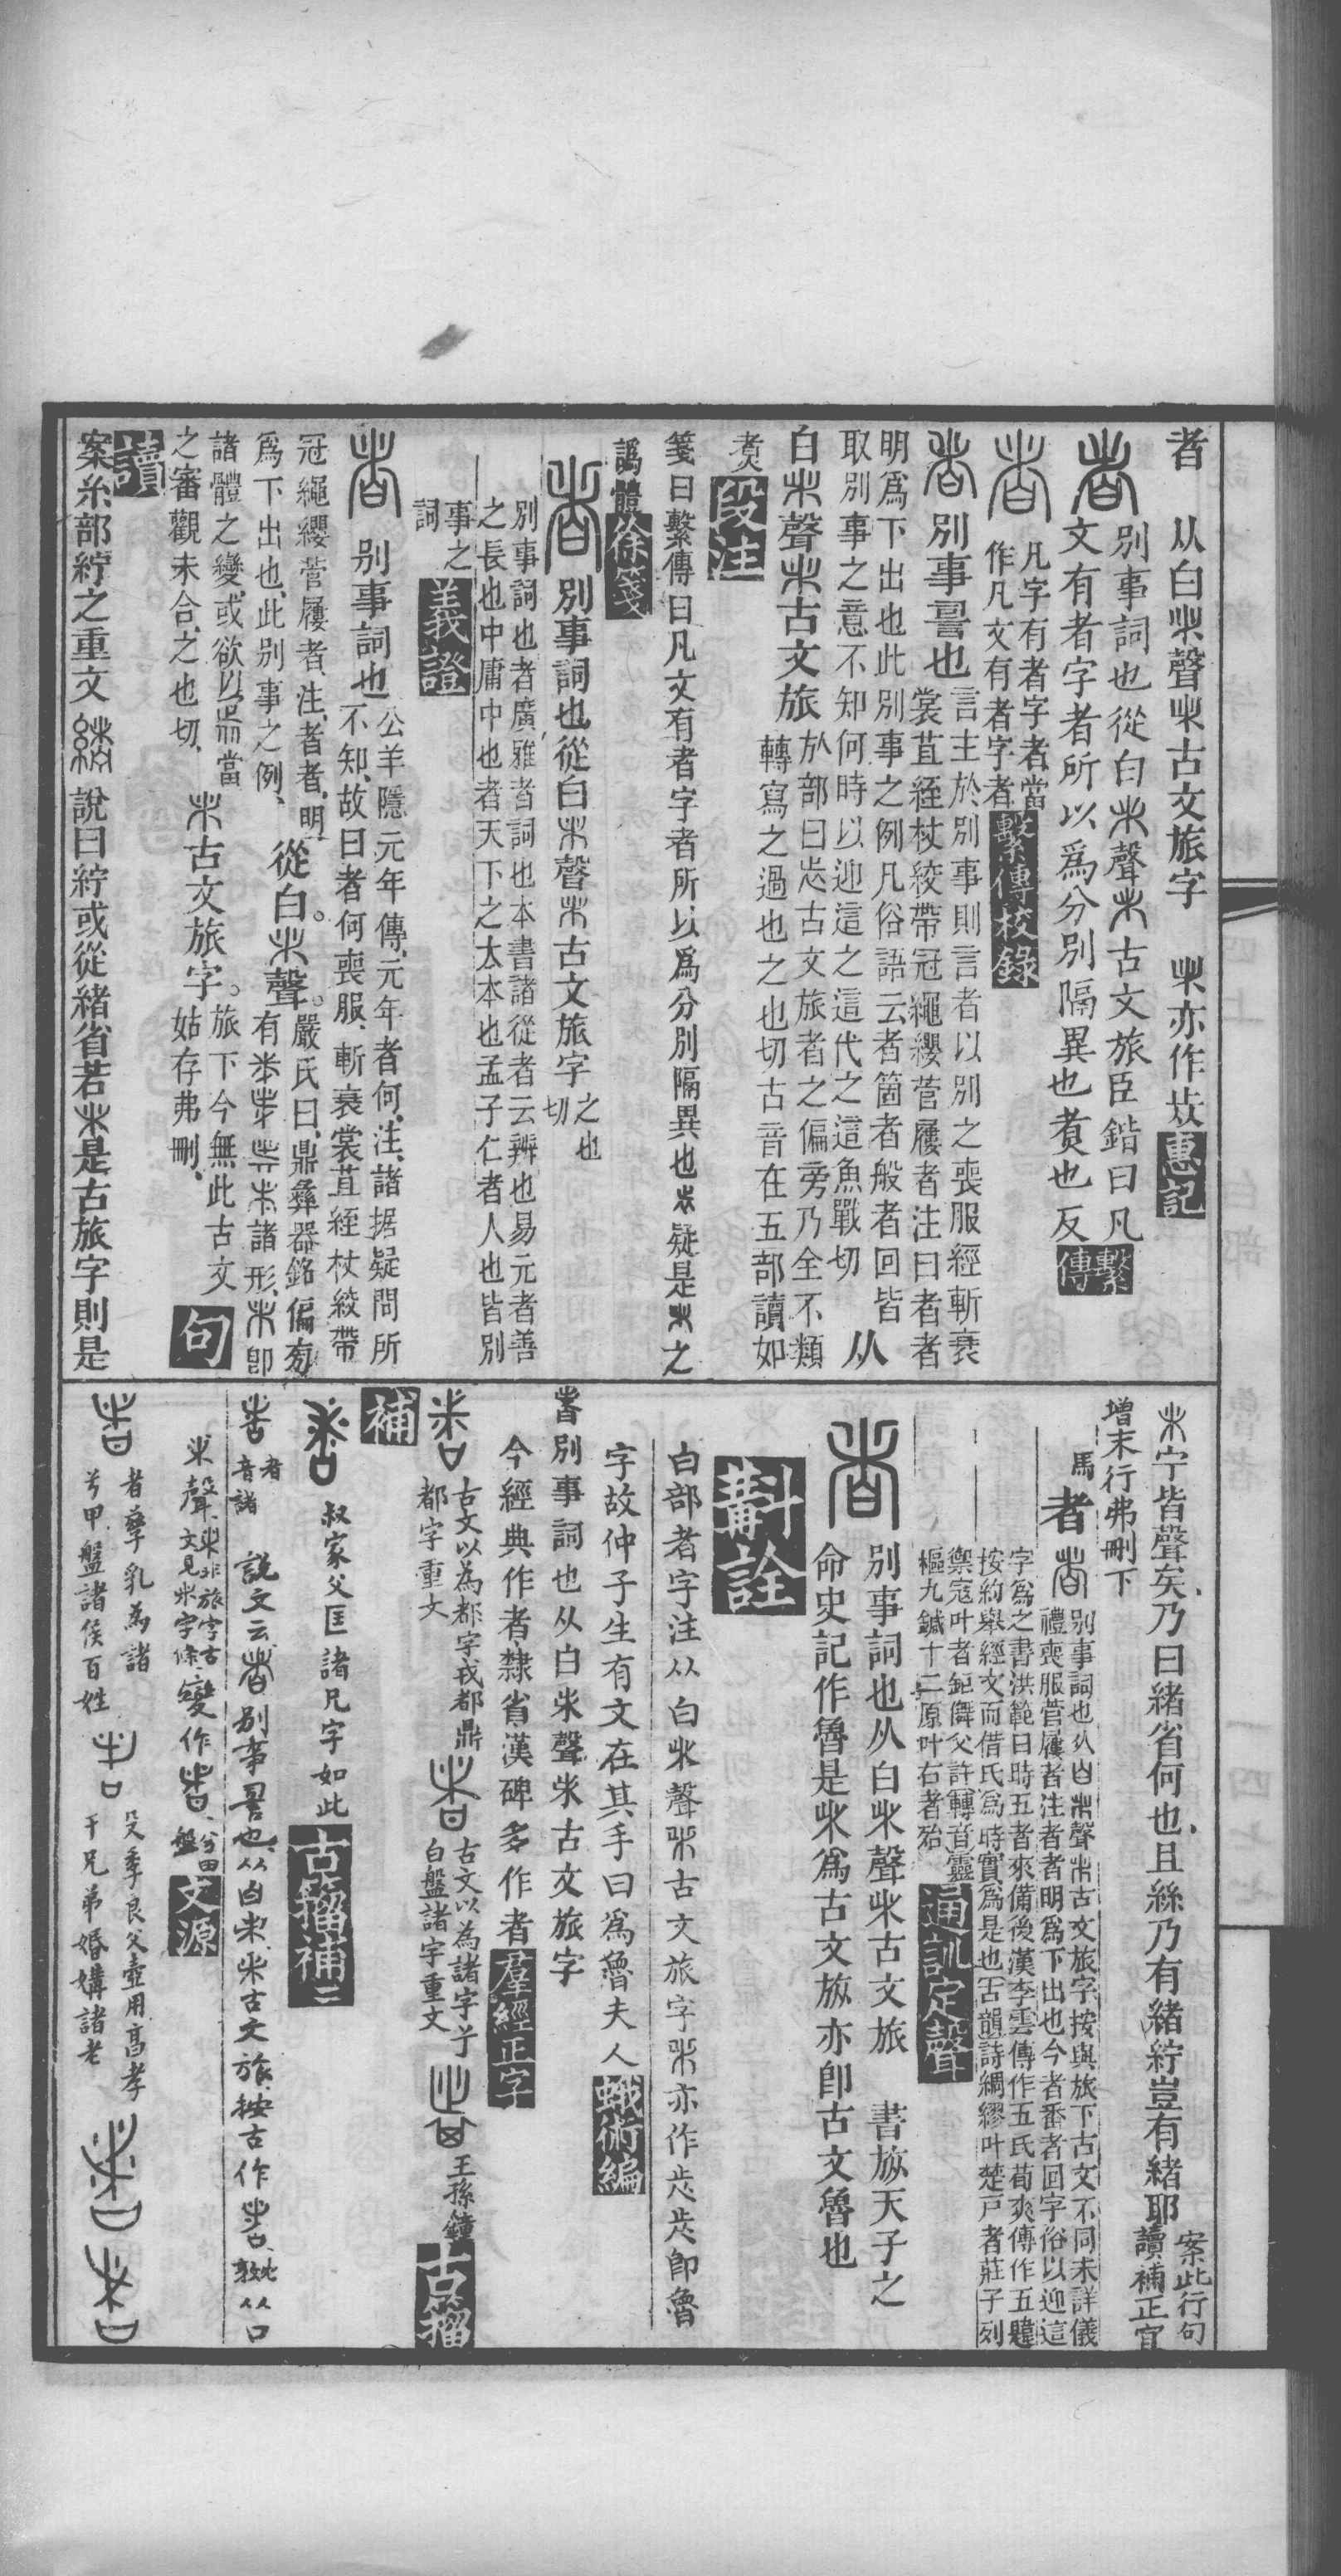 者 从白𣥐聲𣥐古文旅字 𣥐亦作𣥏 惠記
別事詞也從白聲古文旅臣鍇曰凡
文有者字者所以爲分別隔異也煑也反 繫傳
凡字有者字者當
作凡文有者字者 繫傳校錄
別事䛐也
言主於別事則言者以別之喪服經斬衰
裳苴絰杖絞帶冠繩纓菅屨者注曰者者
明爲下出也此別事之例凡俗語云者箇者般者回皆
取別事之意不知何時以迎這之這代之這魚戰切
从
白聲古文旅
於部曰古文旅者之偏旁乃全不類
轉寫之過也之也切古音在五部讀如
煑 段注
箋曰繫傳曰凡文有者字者所以爲分別隔異也疑是之
譌體 徐箋
別事詞也從白聲古文旅字
之也
切
別事詞也者廣雅者詞也本書諸從者云辨也易元者善
之長也中庸中也者天下之大本也孟子仁者人也皆別
事之
詞 義證
別事詞也
公羊隱元年傳元年者何注諸据疑問所
不知故曰者何喪服斬衰裳苴絰杖絞帶
冠繩纓菅屨者注者者明
爲下出也此別事之例
從白聲
嚴氏曰鼎彝器銘偏旁
有諸形卽
諸體之變或欲以當
之審觀未合之也切
古文旅字
旅下今無此古文
姑存弗刪 句
讀
案糸部紵之重文 說曰紵或從緒省若是古旅字則是
宁皆聲矣乃曰緒省何也且絲乃有緒紵豈有緒耶
案此行句
讀補正宜
增末行弗刪下
馬
者
別事詞也从白聲古文旅字按與旅下古文不同未詳儀
禮喪服菅屨者注者者明爲下出也今者番者回字俗以迎這
字爲之書洪範曰時五者來備後漢李雲傳作五氏荀爽傳作五韙
按約舉經文而借氏爲時實爲是也古韻詩綢繆叶楚戸者莊子列
禦寇叶者鉅儛父許轉音靈
樞九鍼十二原叶右者殆 通訓定聲
別事詞也从白聲古文旅 書旅天子之
命史記作魯是爲古文旅亦卽古文魯也
斠詮
白部者字注从白聲古文旅字亦作卽魯
字故仲子生有文在其手曰爲魯夫人 蛾術編
者別事詞也从白聲古文旅字
今經典作者隸省漢碑多作者 羣經正字
古文以為都字𢦏都鼎
都字重文
古文以為諸字兮
白盤諸字重文
王孫鐘 古籀
補
叔家父匡諸凡字如此 古籀補二
者
音諸
說文云別事䛐也从白古文旅按古作 从口
聲
非旅字古
文見字條
變作
兮田
盤 文源
者孳乳為諸
兮甲盤諸侯百姓
殳季良父壺用亯孝
于兄弟婚媾諸老